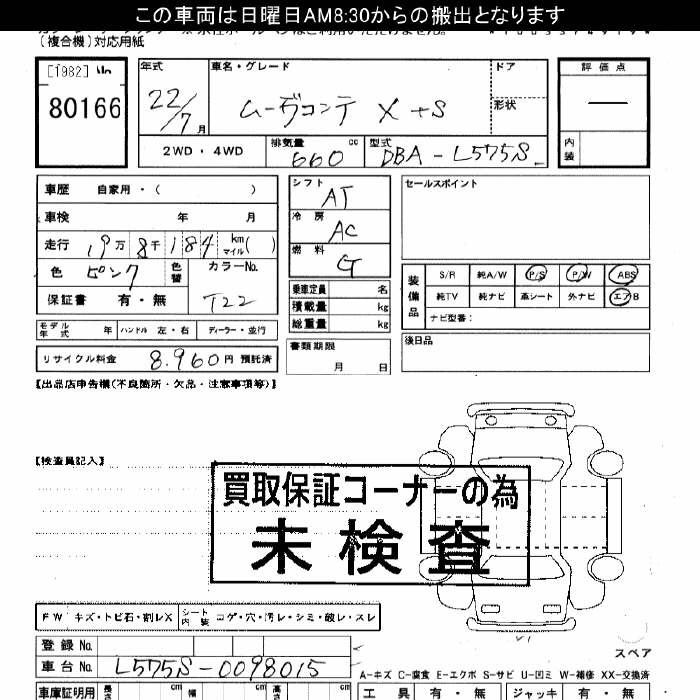 この車両は日曜日AM8:30からの搬出となります
(複合機)対応用紙
[1982]
80166
年式 車名・グレード ドア 評価点
22/7月 ムーヴコンテ X +S 形状 —
内装
2WD・4WD 排気量 660 cc 型式 DBA-L575S
車歴 自家用・( )
車検 年 月
走行 19万8千184 km マイル( )
色 ピンク 色替 カラーNo. T22
保証書 有・無
モデル年式 年 ハンドル 左・右 ディーラー・並行
リサイクル料金 8,960円 預託済
シフト AT
冷房 AC
燃料 G
乗車定員 名
積載量 kg
総重量 kg
書類期限 月 日
セールスポイント
装備品 S/R 純A/W P/S P/W ABS
純TV 純ナビ 革シート 外ナビ エアB
ナビ型番:
後日品
【出品店申告欄(不良箇所・欠品・注意事項等)】
【検査員記入】
買取保証コーナーの為
未検査
FW キズ・トビ石・割レX シート内装 コゲ・穴・汚レ・シミ・破レ・スレ
スペア
登録No.
車台No. L575S-0098015
A-キズ C-腐食 E-エクボ S-サビ U-凹ミ W-補修 XX-交換済
車庫証明用 長さ cm 幅 cm 高さ cm 工具 有・無 ジャッキ 有・無